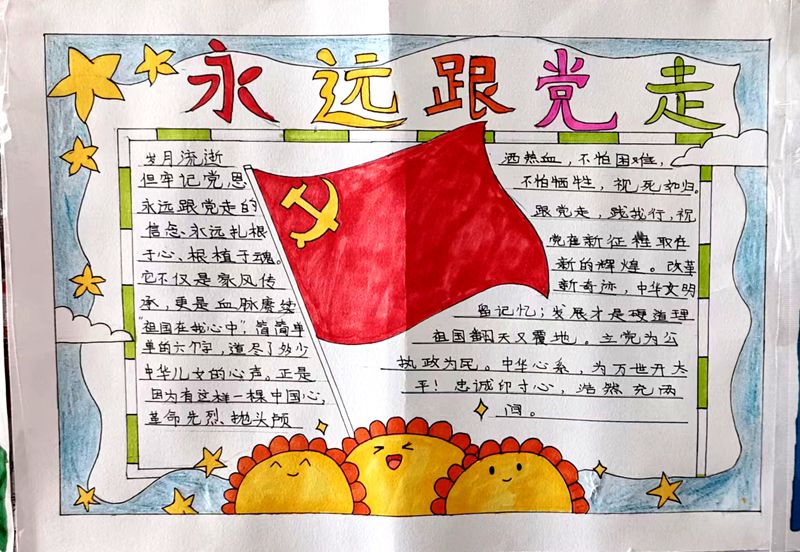 永远跟党走
岁月流逝
但牢记党恩
永远跟党走的
信念、永远扎根
于心、根植于魂。
它不仅是家风传
承,更是血脉赓续
"祖国在我心中"简简单
单的六个字,道尽了多少
中华儿女的心声。正是
因为有这样一棵中国心,
革命先烈、抛头颅
洒热血,不怕困难,
不怕牺牲,视死如归。
跟党走,践我行,祝
党在新征程取在
新的辉煌。改革
新奇迹,中华文明
留记忆;发展才是硬道理
祖国翻天又覆地。立党为公
执政为民。中华心系,为万世开太
平!忠诚印寸心,浩然充两
间。